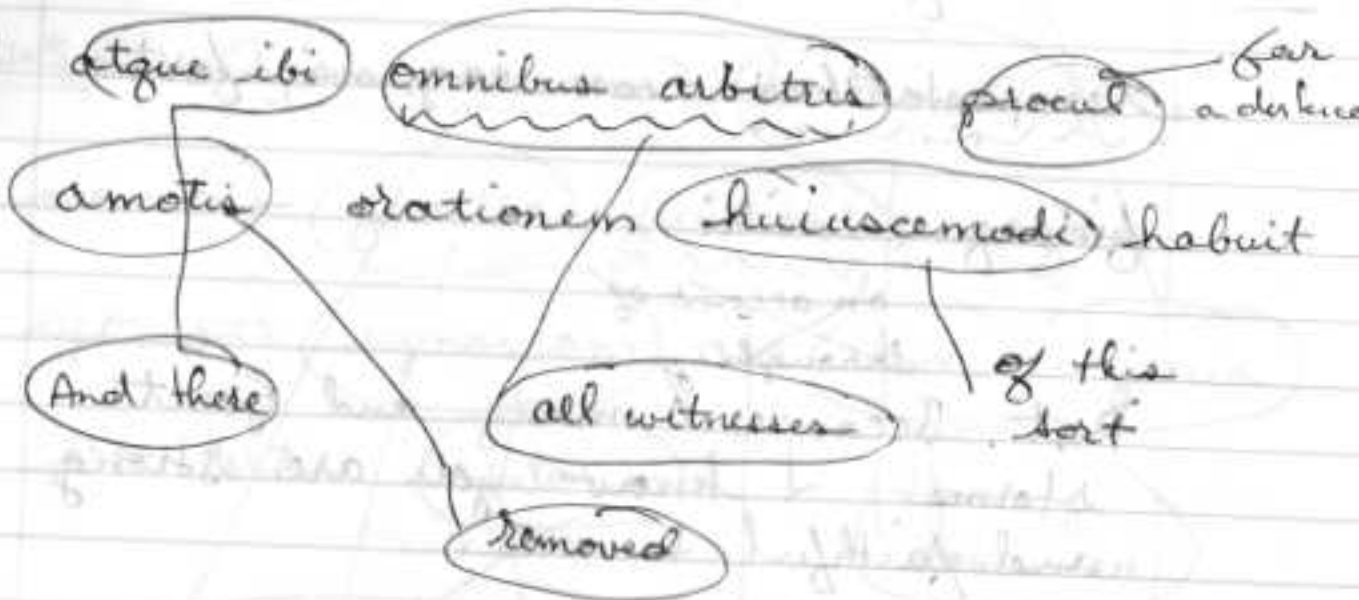 atque ibi omnibus arbitris procul far
a distance
amotis orationem huiuscemodi habuit
And there all witnesses of this
sort
removed